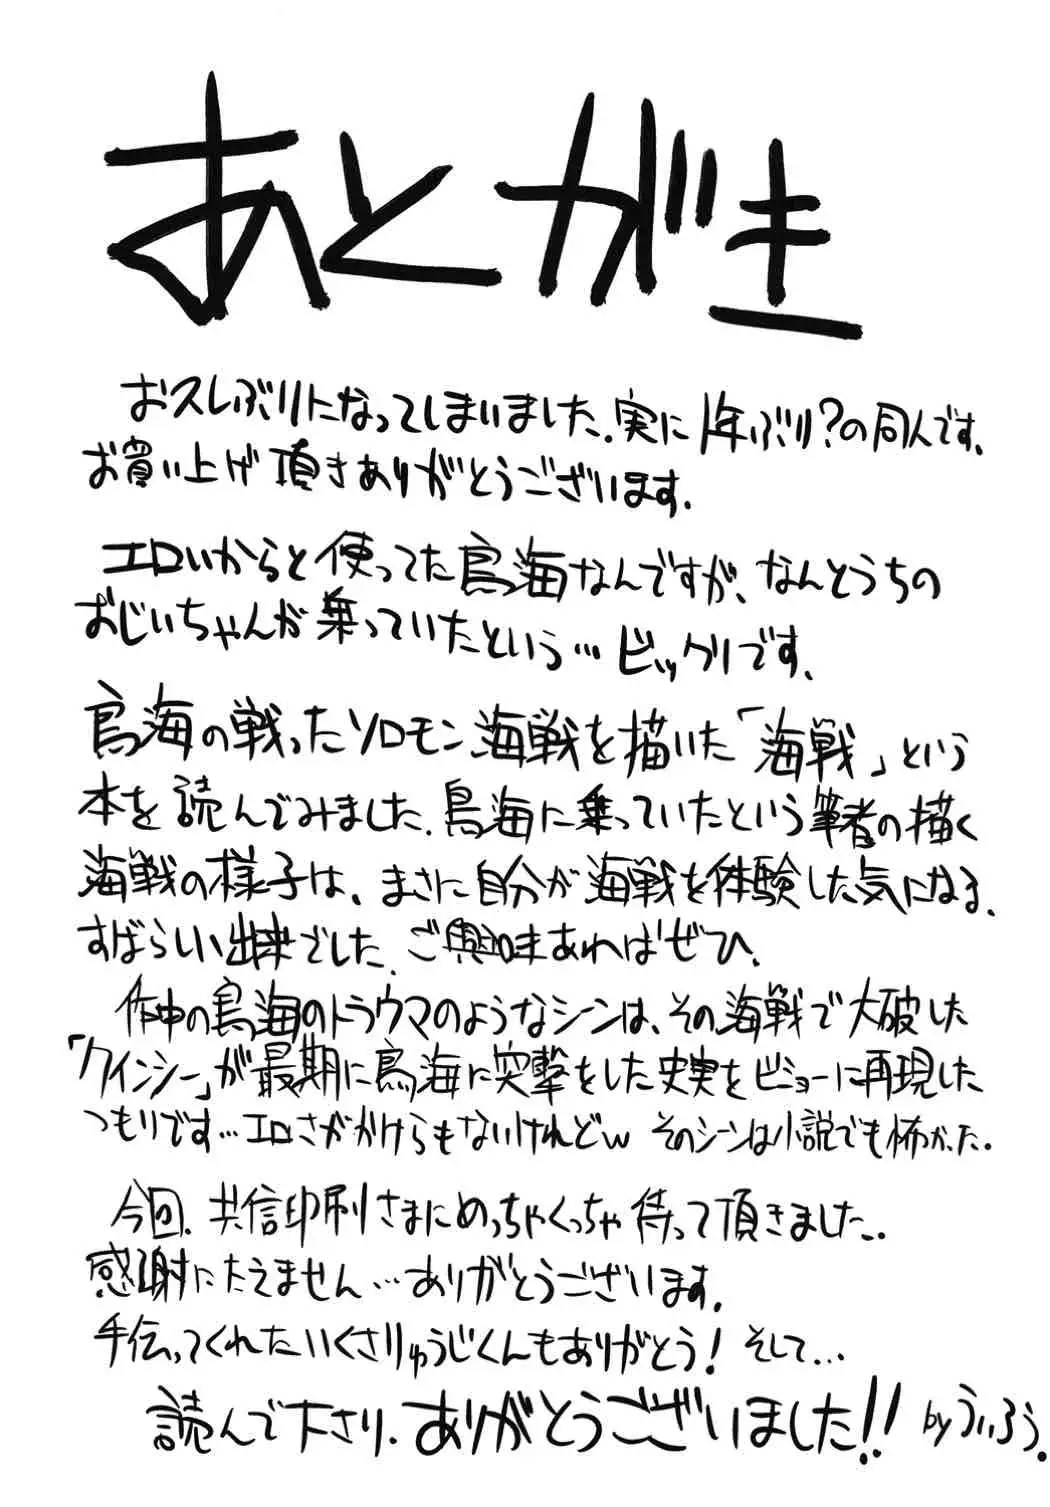 あとがき
お久しぶりになってしまいました.実に1年ぶり?の同人です.
お買い上げ頂きありがとうございます.
エロいからと使ってた鳥海なんですが、なんとうちの
おじいちゃんが乗っていたという…ビックリです.
鳥海の戦ったソロモン海戦を描いた「海戦」という
本を読んでみました.鳥海に乗っていたという筆者の描く
海戦の様子は、まさに自分が海戦を体験した気になる.
すばらしい出来でした.ご興味あればぜひ.
作中の鳥海のトラウマのようなシーンは、その海戦で大破した
「クインシー」が最期に鳥海に突撃をした史実をビミョーに再現した
つもりです…エロさがかけらもないけれどw そのシーンは小説でも怖かった.
今回.共信印刷さまにめっちゃくっちゃ待って頂きました..
感謝にたえません…ありがとうございます.
手伝ってくれたいくさりゅうじくんもありがとう! そして…
読んで下さり.ありがとうございました!! byういろう.